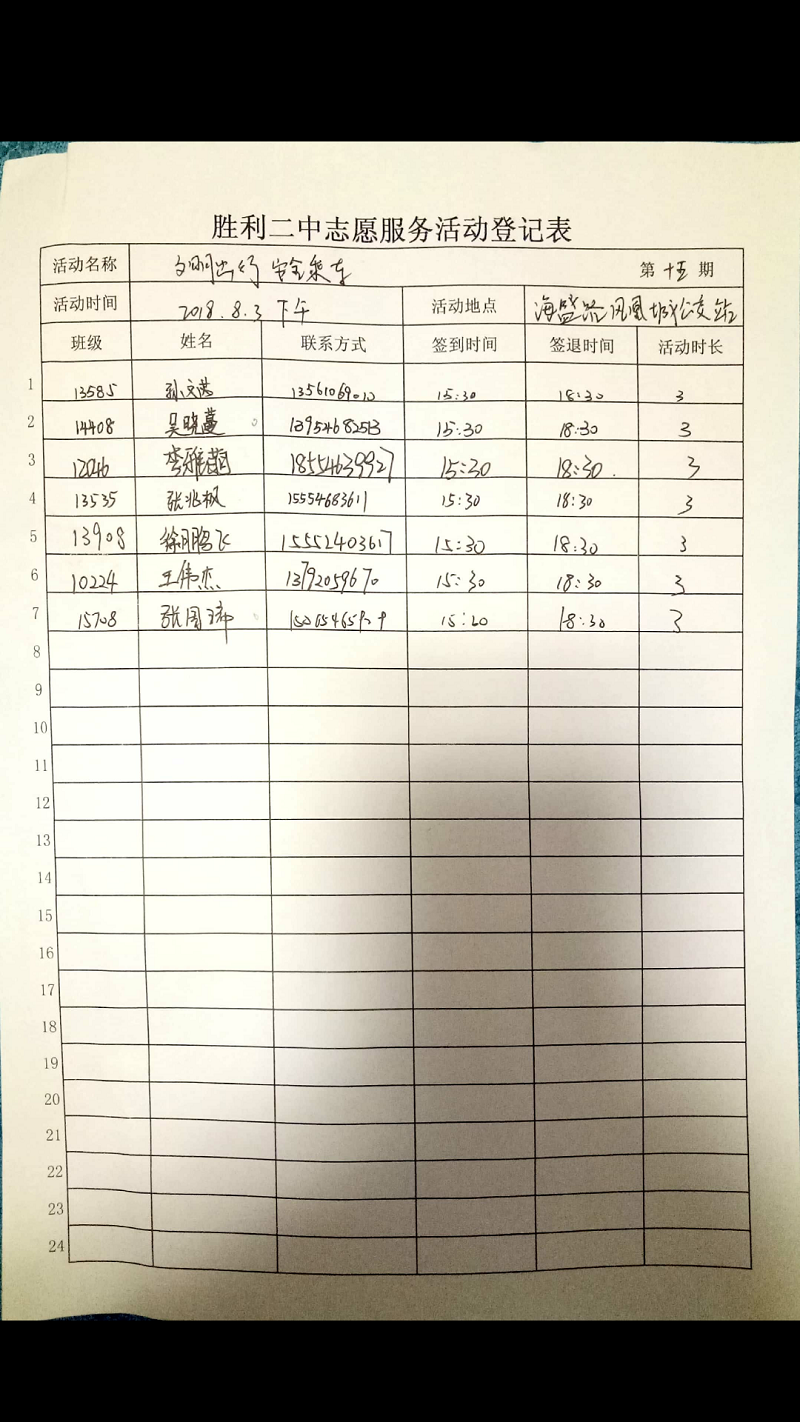 胜利二中志愿服务活动登记表
活动名称 文明出行 安全乘车 第 十五 期
活动时间 2018.8.3 下午 活动地点 海盛路凤凰城公交站
班级 姓名 联系方式 签到时间 签退时间 活动时长
1 13585 15:30 18:30 3
2 14408 吴晓蔓 13954682513 15:30 18:30 3
3 12046 李雅茜 18554639927 15:30 18:30. 3
4 13535 张兆枫 15554683611 15:30 18:30 3
5 13908 徐鹏飞 15552403617 15:30 18:30 3
6 10224 王伟杰 15:30 18:30 3
7 15708 张国玮 18:30 3
8
9
10
11
12
13
14
15
16
17
18
19
20
21
22
23
24